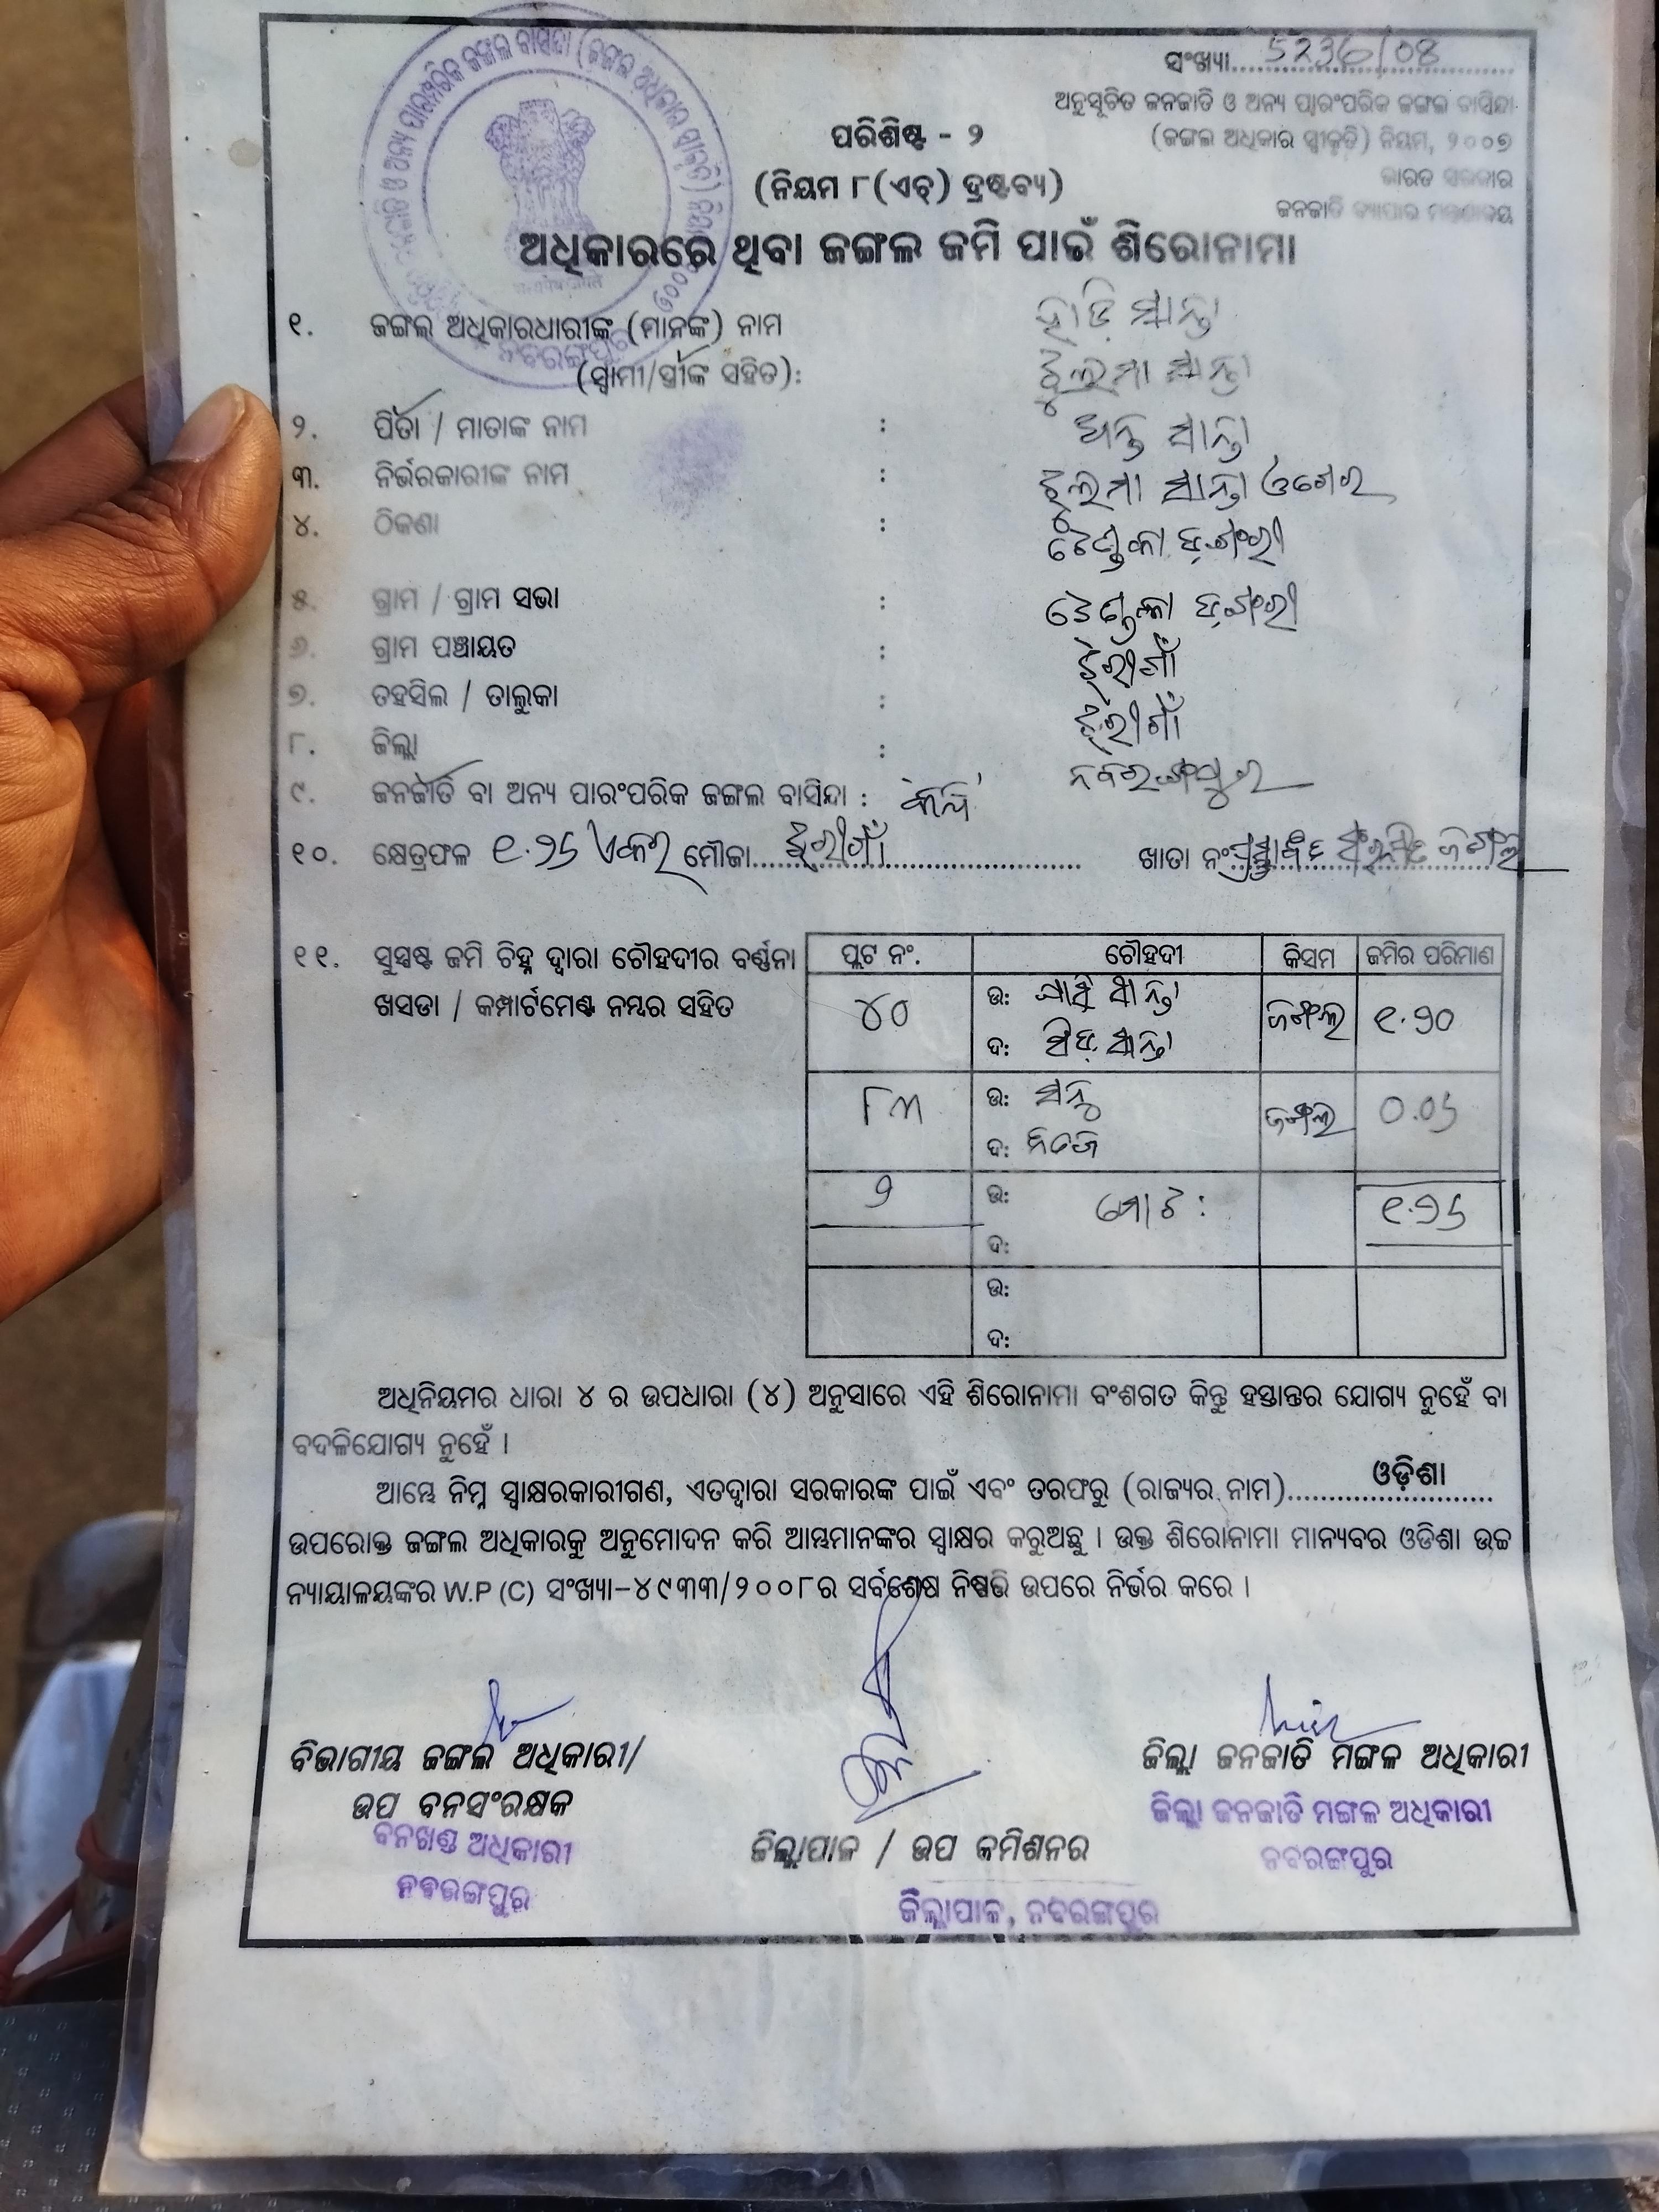 ସଂଖ୍ୟା 5236/08
ଅନୁସୂଚିତ ଜନଜାତି ଓ ଅନ୍ୟ ପାରଂପରିକ ଜଙ୍ଗଲ ବାସିନ୍ଦା
ପରିଶିଷ୍ଟ - ୨
(ଜଙ୍ଗଲ ଅଧିକାର ସ୍ୱୀକୃତି) ନିୟମ, ୨୦୦୭
(ନିୟମ ୮(ଏଚ୍) ଦ୍ରଷ୍ଟବ୍ୟ)
ଭାରତ ସରକାର
ଜନଜାତି ବ୍ୟାପାର ମନ୍ତ୍ରଣାଳୟ
ଅଧିକାରରେ ଥିବା ଜଙ୍ଗଲ ଜମି ପାଇଁ ଶିରୋନାମା
୧. ଜଙ୍ଗଲ ଅଧିକାରଧାରୀଙ୍କ (ମାନଙ୍କ) ନାମ ହାଡି ସାନ୍ତା
(ସ୍ୱାମୀ/ସ୍ତ୍ରୀଙ୍କ ସହିତ): ସାନ୍ତା
୨. ପିତା / ମାତାଙ୍କ ନାମ : ସାନ୍ତା
୩. ନିର୍ଭରକାରୀଙ୍କ ନାମ : ସାନ୍ତା ଓଗେର
୪. ଠିକଣା :
୫. ଗ୍ରାମ / ଗ୍ରାମ ସଭା :
୬. ଗ୍ରାମ ପଞ୍ଚାୟତ : ଝରୀଗାଁ
୭. ତହସିଲ / ତାଲୁକା : ଝରୀଗାଁ
୮. ଜିଲ୍ଲା : ନବରଙ୍ଗପୁର
୯. ଜନଜାତି ବା ଅନ୍ୟ ପାରଂପରିକ ଜଙ୍ଗଲ ବାସିନ୍ଦା :
୧୦. କ୍ଷେତ୍ରଫଳ ୧.୨୫ ଏକର ମୌଜା ଝରୀଗାଁ ଖାତା ନଂ ଜଙ୍ଗଲ
୧୧. ସୁସ୍ପଷ୍ଟ ଜମି ଚିହ୍ନ ଦ୍ୱାରା ଚୌହଦୀର ବର୍ଣ୍ଣନା
ଖସଡା / କମ୍ପାର୍ଟମେଣ୍ଟ ନମ୍ବର ସହିତ
ପ୍ଲଟ ନଂ. ଚୌହଦୀ କିସମ ଜମିର ପରିମାଣ
୪୦ ଉ: ସାନ୍ତା ଜଙ୍ଗଲ ୧.୨୦
ଦ: ସାନ୍ତା
୮୩ ଉ: ଜଙ୍ଗଲ ୦.୦୫
ଦ: ନିଜଜମି
୨ ଉ: ମୋଟ : ୧.୨୫
ଦ:
ଉ:
ଦ:
ଅଧିନିୟମର ଧାରା ୪ ର ଉପଧାରା (୪) ଅନୁସାରେ ଏହି ଶିରୋନାମା ବଂଶଗତ କିନ୍ତୁ ହସ୍ତାନ୍ତର ଯୋଗ୍ୟ ନୁହେଁ ବା
ବଦଳିଯୋଗ୍ୟ ନୁହେଁ ।
ଆମ୍ଭେ ନିମ୍ନ ସ୍ୱାକ୍ଷରକାରୀଗଣ, ଏତଦ୍ୱାରା ସରକାରଙ୍କ ପାଇଁ ଏବଂ ତରଫରୁ (ରାଜ୍ୟର ନାମ) ଓଡ଼ିଶା
ଉପରୋକ୍ତ ଜଙ୍ଗଲ ଅଧିକାରକୁ ଅନୁମୋଦନ କରି ଆମ୍ଭମାନଙ୍କର ସ୍ୱାକ୍ଷର କରୁଅଛୁ । ଉକ୍ତ ଶିରୋନାମା ମାନ୍ୟବର ଓଡିଶା ଉଚ୍ଚ
ନ୍ୟାୟାଳୟଙ୍କର W.P (C) ସଂଖ୍ୟା-୪୯୩୩/୨୦୦୮ର ସର୍ବଶେଷ ନିଷ୍ପତ୍ତି ଉପରେ ନିର୍ଭର କରେ ।
ବିଭାଗୀୟ ଜଙ୍ଗଲ ଅଧିକାରୀ/
ଉପ ବନସଂରକ୍ଷକ
ବନଖଣ୍ଡ ଅଧିକାରୀ
ନବରଙ୍ଗପୁର
ଜିଲ୍ଲାପାଳ / ଉପ କମିଶନର
ଜିଲ୍ଲାପାଳ, ନବରଙ୍ଗପୁର
ଜିଲ୍ଲା ଜନଜାତି ମଙ୍ଗଳ ଅଧିକାରୀ
ଜିଲ୍ଲା ଜନଜାତି ମଙ୍ଗଳ ଅଧିକାରୀ
ନବରଙ୍ଗପୁର